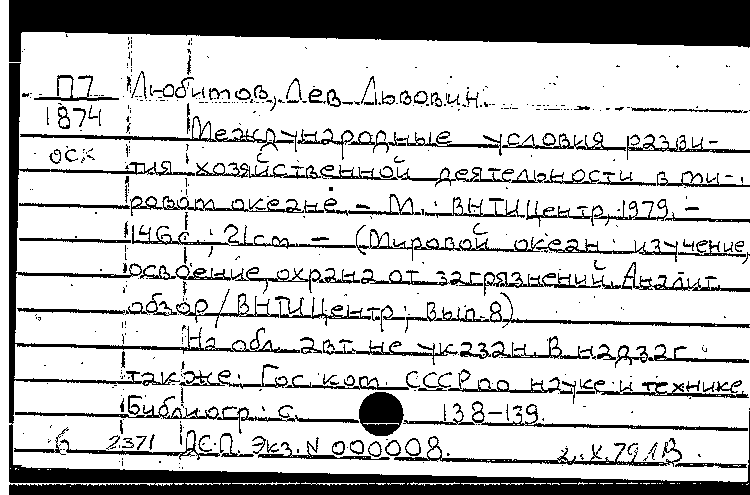 П7 Любимов, Лев Львович.
1874 Международные условия разви-
оск тия хозяйственной деятельности в ми-
ровом океане. – М.: ВНТИЦентр, 1979. –
146с.; 21cm – (Мировой океан: изучение,
освоение, охрана от загрязнений. Аналит.
обзор / ВНТИЦентр; Вып. 8)
На обл. авт. не указан. В надзаг.
также: Гос. ком. СССР по науке и технике
Библиогр.: с. 138-139.
6 2371 ДСП. Экз. N 000008. X.79